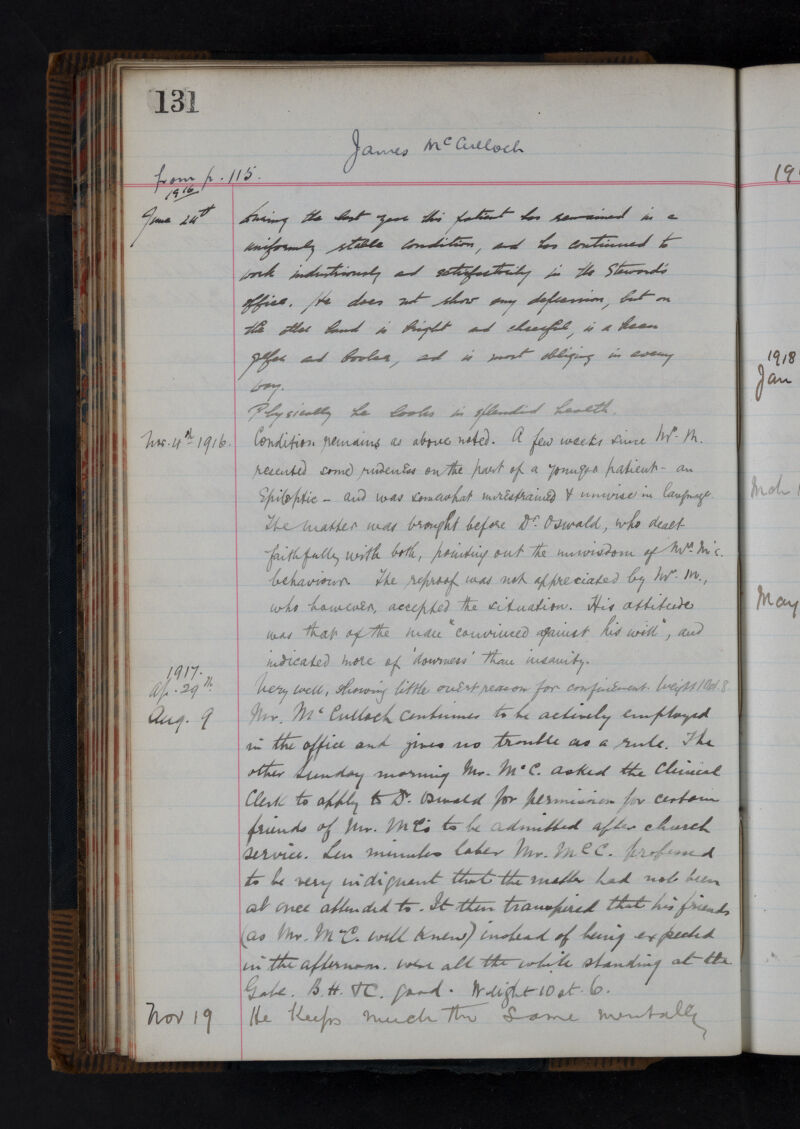 131
James McCulloch
from p. 115.
191
1916
June 24th During the last year this patient has remained in a
uniformly stable condition, and has continued to
work industriously and satisfactorily in the Steward's
office. He does not show any depression, but on
the other hand is bright and cheerful, is a keen
golfer and bowler, and is most obliging in every
way.
Physically he looks in splendid health.
Nov. 4th 1916. Condition remains as above noted. A few weeks since Mr. M.
resented some rudeness on the part of a younger patient - an
Epileptic - and was somewhat unrestrained & unwise in language.
The matter was brought before Dr. Oswald, who dealt
faithfully with both, pointing out the unwisdom of Mr. McC.
behaviour. The reproof was not appreciated by Mr. M.,
who however, accepted the situation. His attitude
was that of the man "convinced against his will", and
indicated more of 'dourness' than insanity.
1917.
Ap. 29th. Very well, showing little overt reason for confinement. Weight 10st. 8.
Aug. 9 Mr. McCulloch continues to be actively employed
in the office and gives no trouble as a rule. The
other Sunday morning Mr. McC. asked the Clinical
Clerk to apply to Dr. Oswald for permission for certain
friends of Mr. McC's to be admitted after church
service. Ten minutes later Mr. McC. professed
to be very indignant that the matter had not been
at once attended to. It then transpired that his friends
(as Mr. McC. well knew) instead of being expected
in the afternoon. were all the while standing at the
Gate. B.H. &C. good. Weight 10 st. 6.
Nov 19 He keeps much the same mentally
1918
Jan
Mch
May